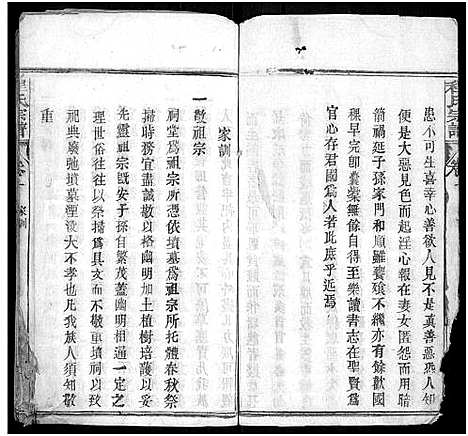 程氏宗譜
卷一
患不可生喜幸心善欲人見不是真善惡恐人知
便是大惡見色而起淫心報在妻女匿怨而用暗
箭禍延子孫家門和順雖饔飧不繼亦有餘歡國
稞早完卽囊橐無餘自得至樂讀書志在聖賢為
官心存君國為人若此庶乎近焉
家訓
一敬祖宗
祠堂為祖宗所憑依墳墓為祖宗所托體春秋祭
祀務宜盡誠敬以格幽明加土植樹培護以妥
先靈祖宗既安子孫自繁茂蓋幽明相通一定之
理世俗往往以祭掃為具文而不敬重墳祠以致
祀典廢弛墳墓湮没大不孝也凡我族人須知敬
重
程氏宗譜
卷一
家訓